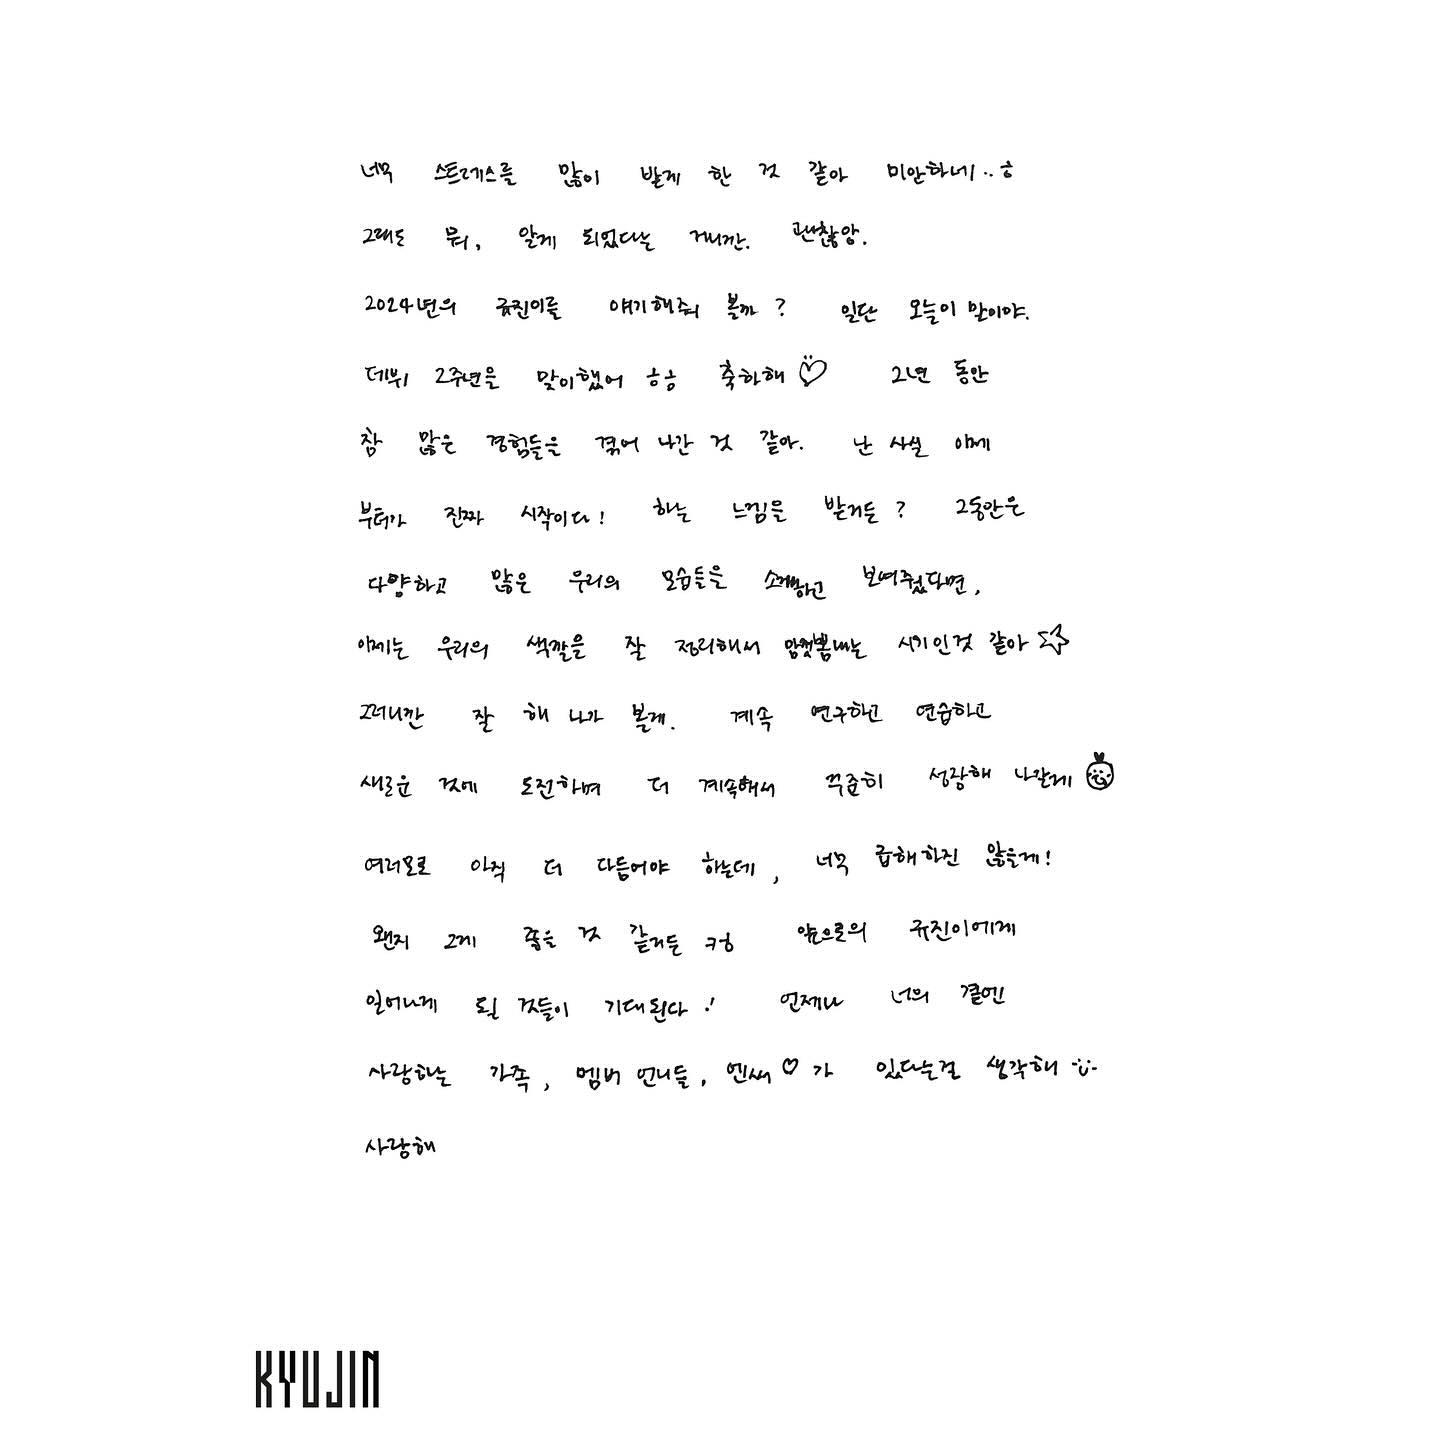 너무 스트레스를 많이 받게 한 것 같아 미안하네..ㅎ
그래도 뭐, 알게 되었다는 거니깐. 괜찮앙.
2024년의 규진이를 얘기해줘 볼까? 일단 오늘이 말이야.
데뷔 2주년을 맞이했어 ㅎㅎ 축하해♡ 2년 동안
참 많은 경험들을 겪어 나간 것 같아. 난 사실 이제
부터가 진짜 시작이다! 하는 느낌을 받거든? 그동안은
다양하고 많은 우리의 모습들을 소개하고 보여줬다면,
이제는 우리의 색깔을 잘 정리해서 맘껏 뽐내는 시기인것 같아☆
그러니깐 잘 해 나가 볼게. 계속 연구하고 연습하고
새로운 것에 도전하며 더 계속해서 꾸준히 성장해 나갈게
여러모로 아직 더 다듬어야 하는데, 너무 급해하진 않을게!
왠지 그게 좋을 것 같거든 ㅋㅎ 앞으로의 규진이에게
일어나게 될 것들이 기대된다! 언제나 너의 곁엔
사랑하는 가족, 멤버 언니들, 엔써♡가 있다는걸 생각해
사랑해
KYUJIN